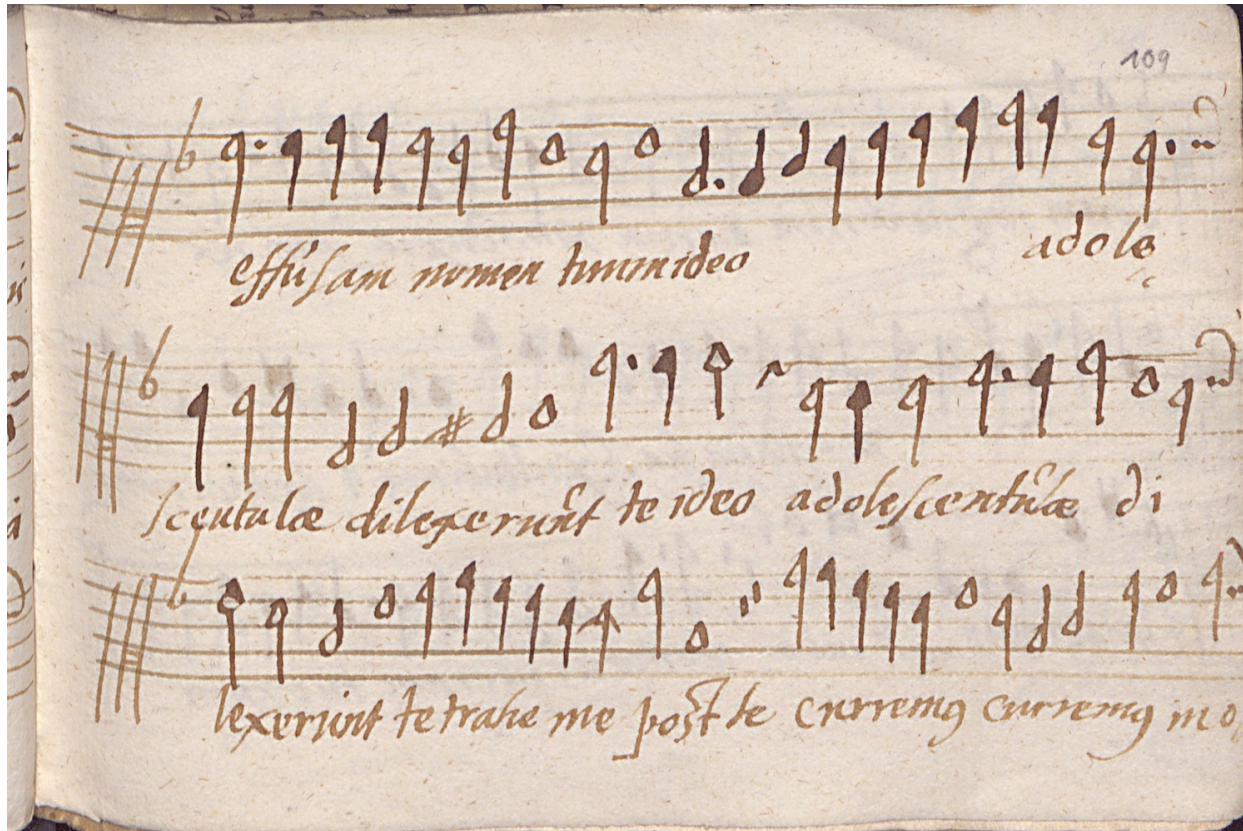 109
effusam nomen tuum ideo adole
scentulæ dilexerunt te ideo adolescentulæ di
lexeriunt te trahe me post te curremꝯ curremꝯ in o